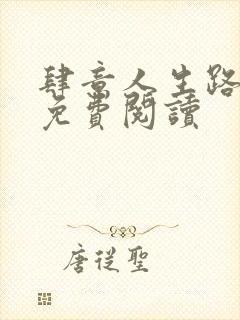 肆意人生路
免費閱讀
唐從聖